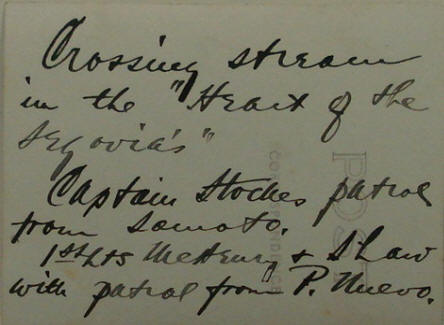 Crossing stream
in the "Heart of the
Segovia's"
Captain Stockes patrol
from Somoto.
1st Lts McHenry & Shaw
with patrol from P. Nuevo.
POST
CORRESPONDENCE